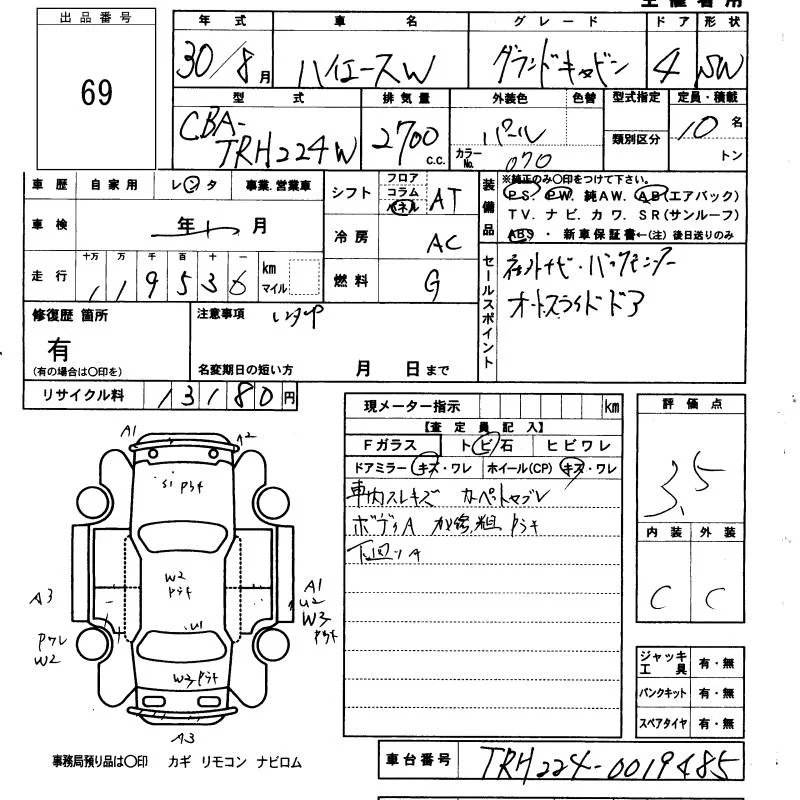 主催者用
出品番号
69
年式 車名 グレード ドア 形状
30/8月 ハイエースW グランドキャビン 4 SW
型式 排気量 外装色 色替 型式指定 定員・積載
CBA-TRH224W 2700 c.c. パール カラーNo. 070 類別区分 10名
トン
車歴 自家用 レンタ 事業.営業車
車検 年 月
走行 十万 万 千 百 十 一
119536 km マイル
シフト フロア コラム パネル AT
冷房 AC
燃料 G
装備品
※純正のみ〇印をつけて下さい。
PS. PW. 純AW. AB(エアバック)
TV. ナビ. カワ. SR(サンルーフ)
ABS ・ 新車保証書←(注) 後日送りのみ
セールスポイント
オートスライドドア
修復歴 箇所
有
(有の場合は〇印を)
注意事項 レンタUP
名変期日の短い方 月 日まで
リサイクル料 13180円
現メーター指示 km
【査定員記入】
Fガラス トビ石 ヒビワレ
ドアミラー キズ・ワレ ホイール(CP) キズ・ワレ
車内スレキズ カーペットヤブレ
ボディA
下回りA
評価点
3.5
内装 外装
C C
ジャッキ 工具 有・無
パンクキット 有・無
スペアタイヤ 有・無
A1
A2
S1
W2
A3
A1
U2
W3
U1
W2
W3
A3
事務局預り品は〇印 カギ リモコン ナビロム
車台番号 TRH224-0019485